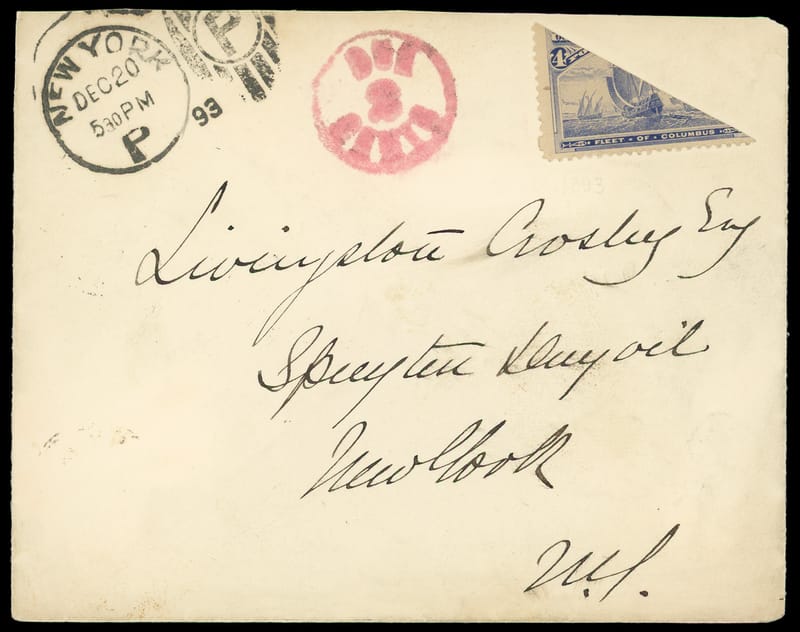 NEW YORK
DEC 20
530 PM
P
93
P
DUE
2
CENTS
4
FLEET · OF · COLUMBUS
Livingston Crosby Esq
Spuyten Duyvil
New York
N.Y.